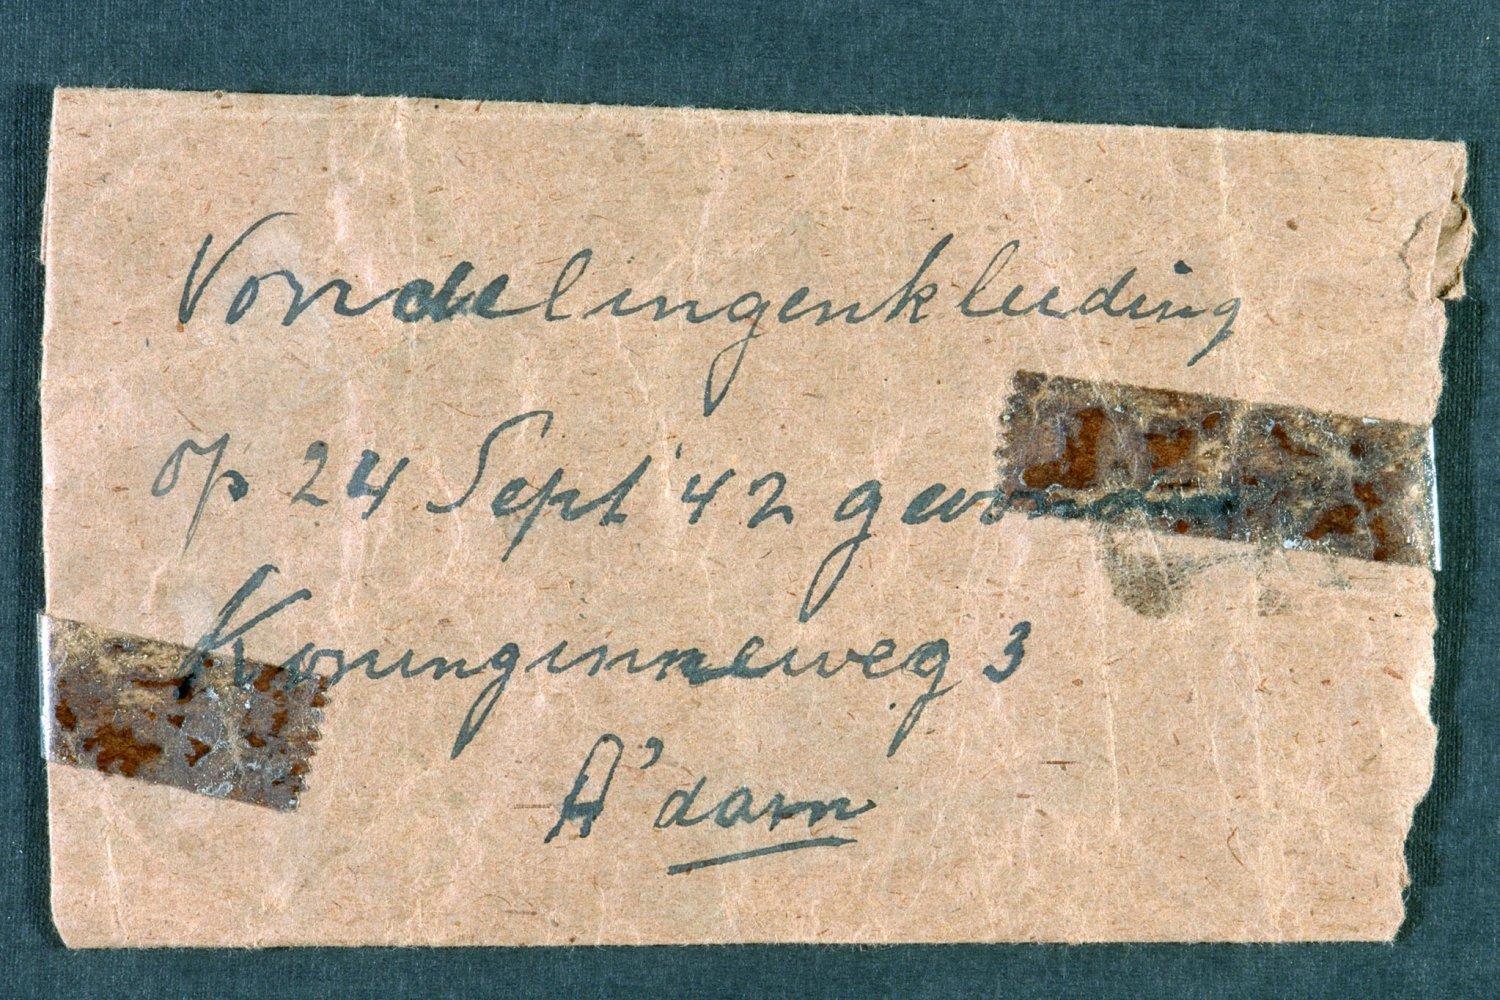 Vondelingenkleeding
op 24 Sept '42 gevonden
Koninginneweg 3
A'dam